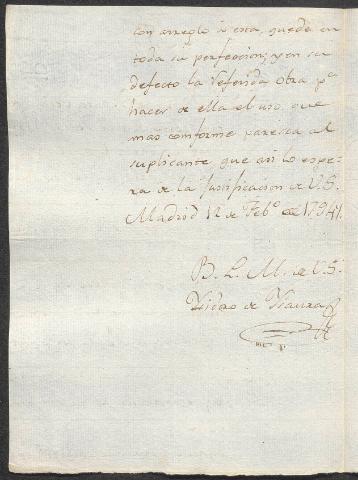 con arreglo à esta, quede en
toda su perfeccion; y en su
defecto la referida obra pª
hacer de ella el uso, que
mas conforme paresca al
suplicante que asi lo espe-
ra de la Justificacion de V.S.
Madrid 12 de Febº de 1794.
B. L. M. de V.S.
Ysidro de